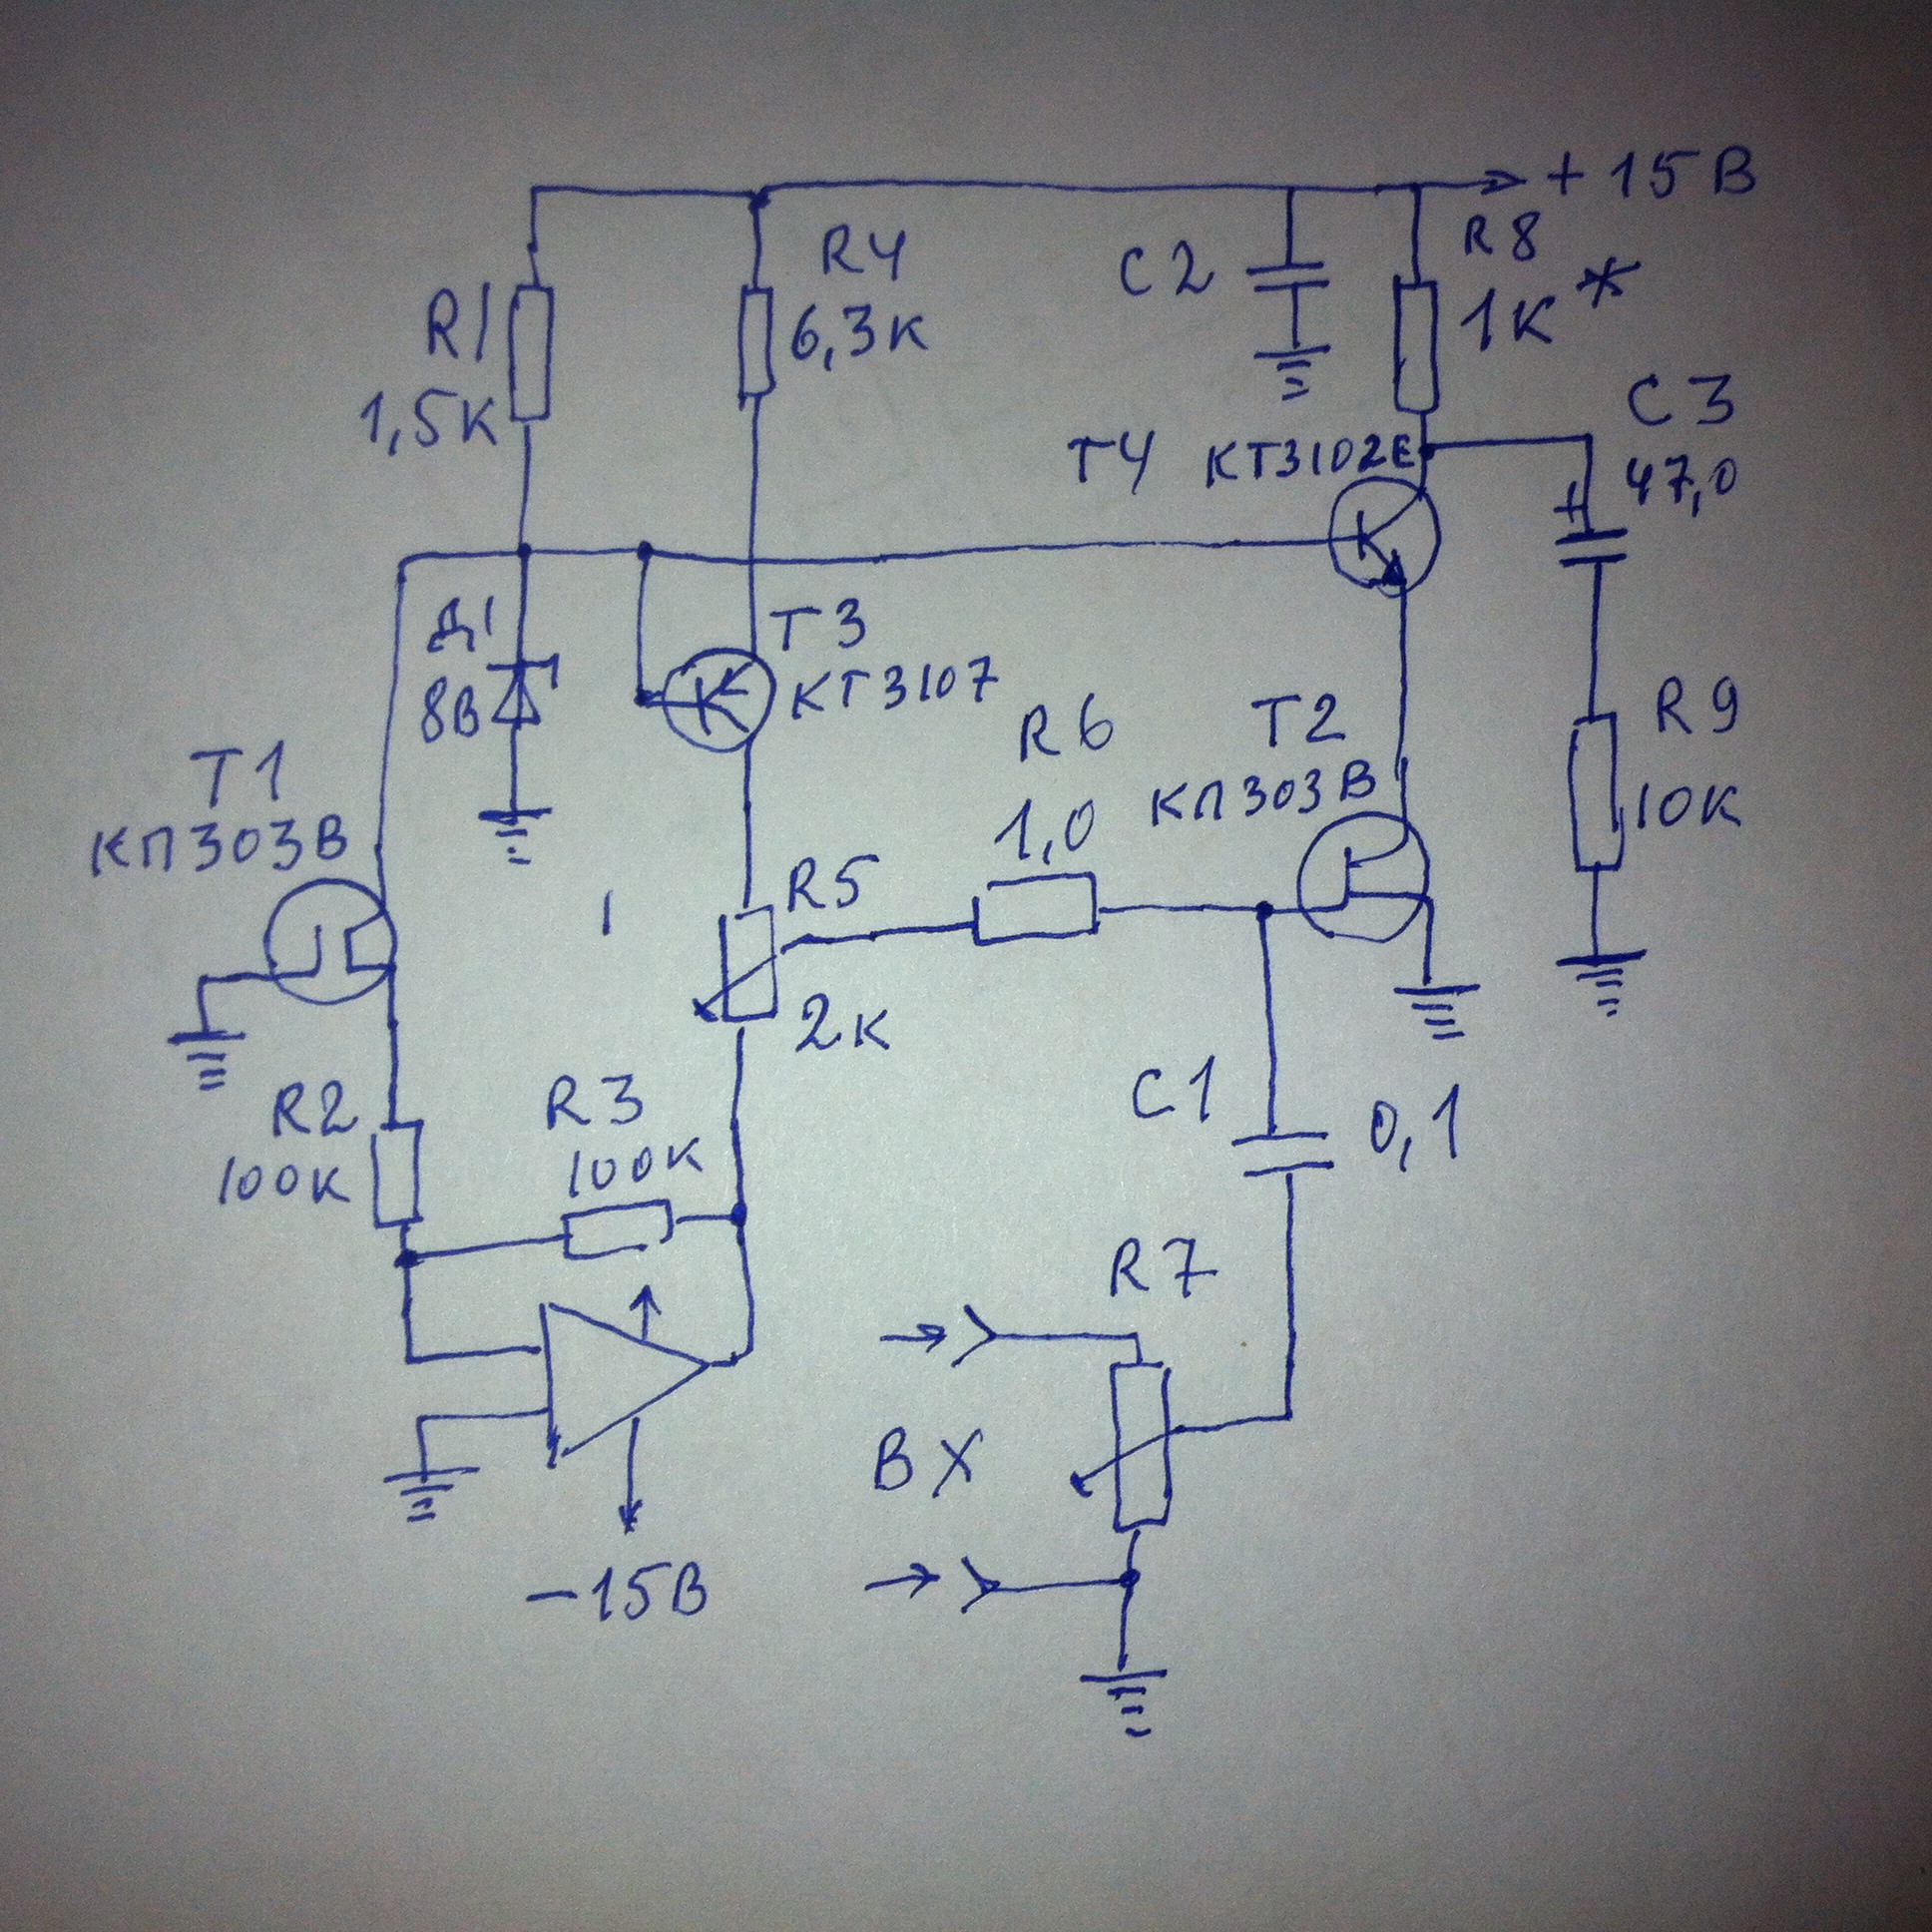 +15В
R4
6,3к
C2
R8
1к*
R1
1,5к
C3
47,0
Т4 КТ3102Е
Д1
8В
Т3
КТ3107
R6
1,0
Т2
КП303В
R9
10к
Т1
КП303В
R5
2к
R2
100к
R3
100к
C1
0,1
R7
ВХ
-15В